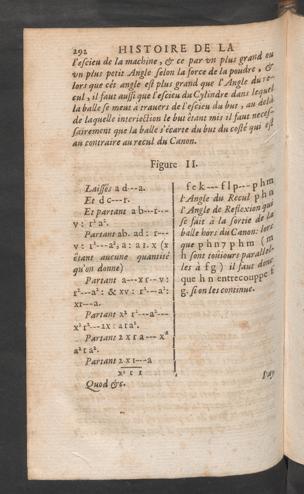 292 HISTOIRE DE LA
l'escieu de la machine, & ce par vn plus grand ou
vn plus petit Angle selon la force de la poudre, &
lors que cét angle est plus grand que l'Angle du re-
cul, il faut aussi que l'escieu du Cylindre dans lequel
la balle se meut à trauers de l'escieu du but, au delà
de laquelle interiection le but étant mis il faut neces-
sairement que la balle s'écarte du but du costé qui est
au contraire au recul du Canon.
Figure II.
Laissés a d---a.
Et d c---r.
Et partant a b---r---
v: r²a².
Partant ab. ad: r---
v: r²---a², a: a r. x (x
étant aucune quantité
qu'on donne)
Partant a---x r--- v:
r²---a²: & xv: r²---a²:
xr---a.
Partant x² r²---a²---
x² r²---2x: a r a².
Partant 2 x r a--- x²
a² r a².
Partant 2 x r---a
x² r r
Quod &c.
f e k --- f l p --- p h m
l'Angle du Recul p h n
l'Angle de Reflexion qui
se fait à la sortie de la
balle hors du Canon: lors
que p h n 7 p h m (m
h sont toûiours parallel-
les à f g) il faut donc
que h n entrecouppe f
g. si on les continue.